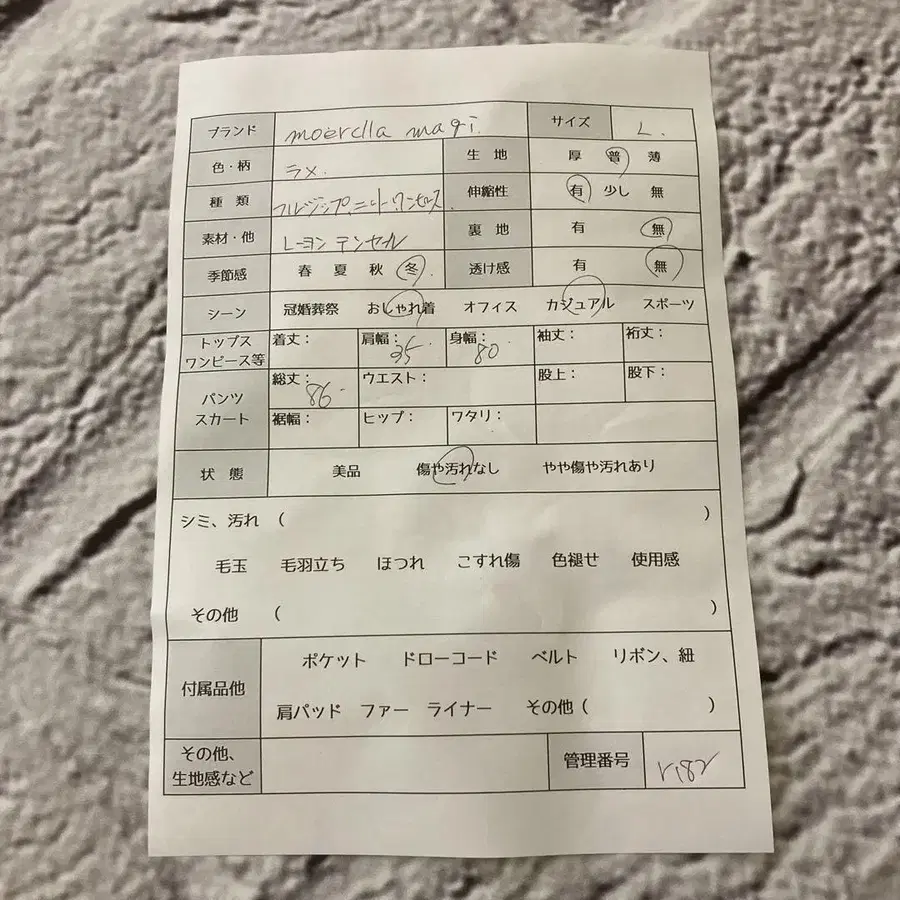 ブランド moerlla magi. サイズ L.
色・柄 ラメ. 生地 厚 普 薄
種類 フルジップ.ニットワンピース 伸縮性 有 少し 無
素材・他 レーヨン テンセル 裏地 有 無
季節感 春 夏 秋 冬 透け感 有 無
シーン 冠婚葬祭 おしゃれ着 オフィス カジュアル スポーツ
トップス ワンピース等 着丈： 肩幅：35 身幅：80 袖丈： 裄丈：
パンツ スカート 総丈：86 ウエスト： 股上： 股下：
裾幅： ヒップ： ワタリ：
状態 美品 傷や汚れなし やや傷や汚れあり
シミ、汚れ （ ）
毛玉 毛羽立ち ほつれ こすれ傷 色褪せ 使用感
その他 （ ）
付属品他 ポケット ドローコード ベルト リボン、紐
肩パッド ファー ライナー その他（ ）
その他、
生地感など 管理番号